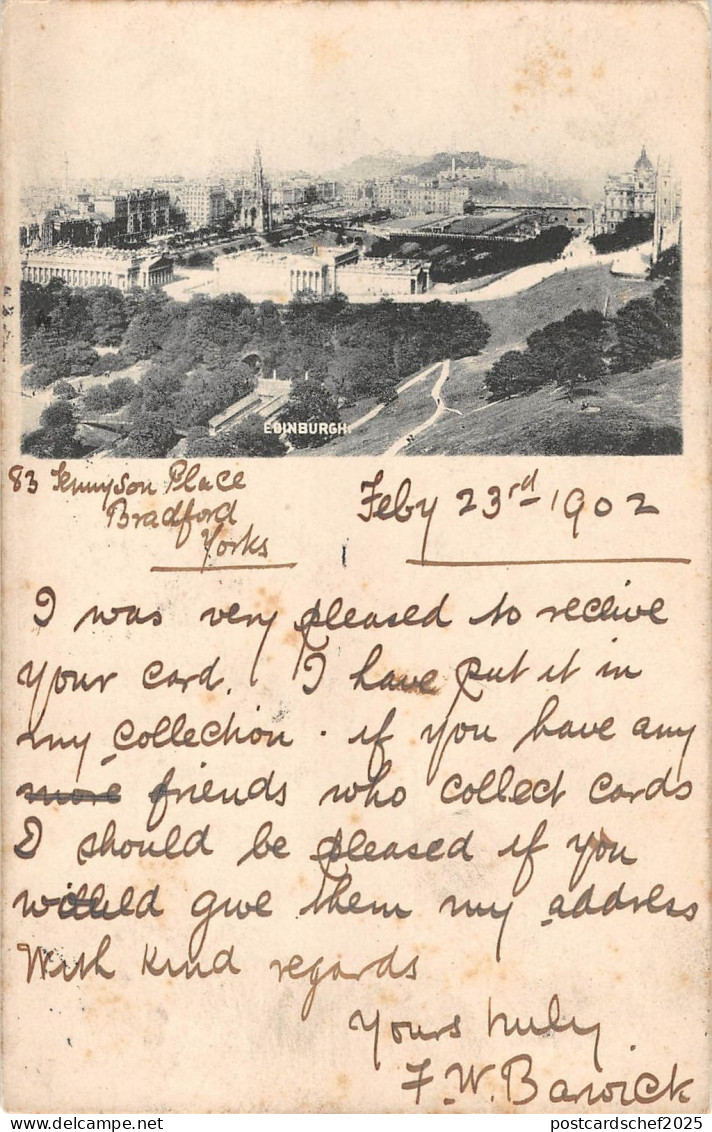 EDINBURGH.
83 Tennyson Place
Bradford
Yorks
Feby 23rd 1902
I was very pleased to receive
your card. I have put it in
my collection. if you have any
more friends who collect cards
I should be pleased if you
would give them my address
With kind regards
Yours truly
F. W. Barwick
postcardschef2025